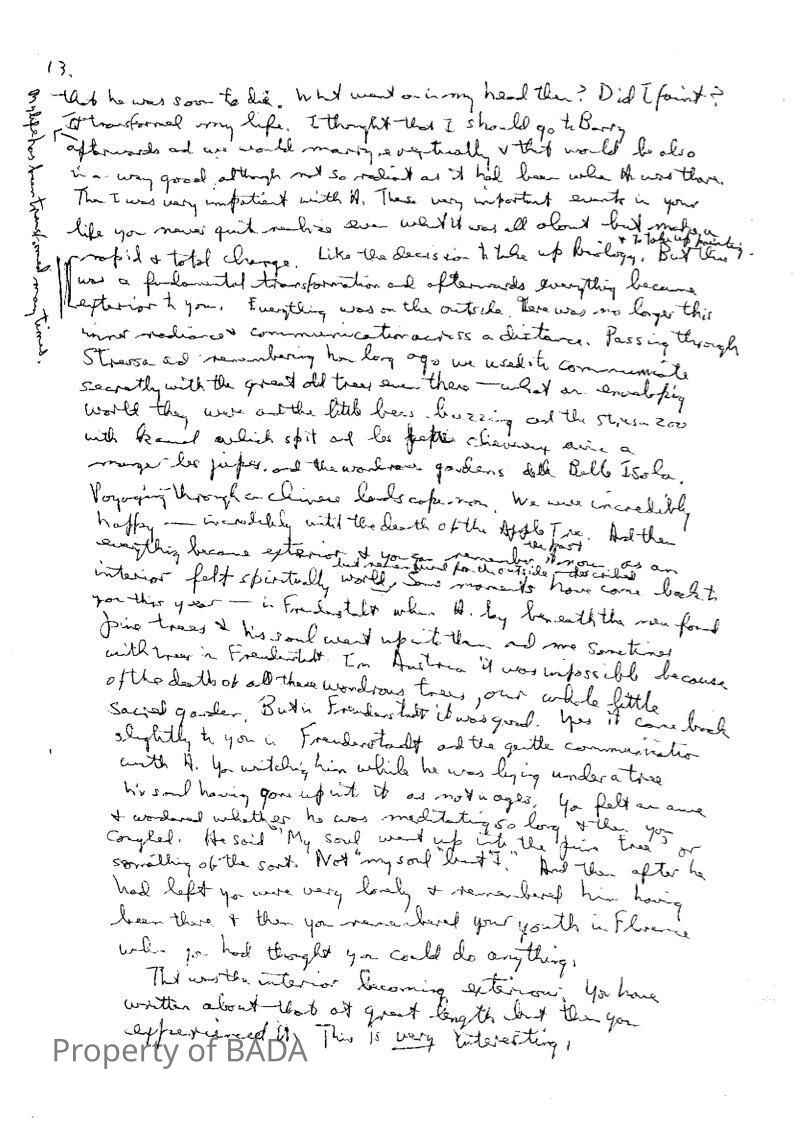 13.
that he was soon to die. What went on in my head then? Did I faint?
It transformed my life. I thought that I should go to Barry
afterwards and we would marry eventually & that would be also
in a way good, although not so radiant as it had been when A. was there.
Then I was very impatient with A. These very important events in your
life you never quit realize even what it was all about but make a
rapid & total change. Like the decision to take up biology, & to take up painting. But this
was a fundamental transformation and afterwards everything became
exterior to you. Everything was on the outside. There was no longer this
inner radiance & communication across a distance. Passing through
Stressa and remembering how long ago we used to communicate
secretly with the great old trees even there — what an enveloping
world they were and the little bees buzzing and the Stresa zoo
with kamel which spit and les petits chevaux avie a
manger les jupes, and the wondrous gardens della Bella Isola.
Voyaging through a Chinese landscape now. We were incredibly
happy — incredibly until the death of the Apple Tree. And then
everything became exterior & you can remember the past now as an
interior felt spiritually world, but never from the outside, described. Some moments have come back to
you this year — in Freudenstadt when A. lay beneath the new found
pine trees & his soul went up into them and me sometimes
with trees in Freudenstadt. In Austria it was impossible because
of the death of all these wondrous trees, our whole little
sacred garden. But in Freudenstadt it was good. Yes it came back
slightly to you in Freudenstadt and the gentle communication
with A. You watching him while he was lying under a tree
his soul having gone up into it as not in ages. You felt an awe
& wondered whether he was meditating so long & then you
coughed. He said "My soul went up into the pine tree" or
something of the sort. Not "my soul" but "I." And then after he
had left you were very lonely & remembered him having
been there & then you remembered your youth in Florence
when you had thought you could do anything.
That was the interior becoming exteriour. You have
written about that at great length but then you
experienced it. This is very interesting.
My life has been transformed many times.
Property of BADA